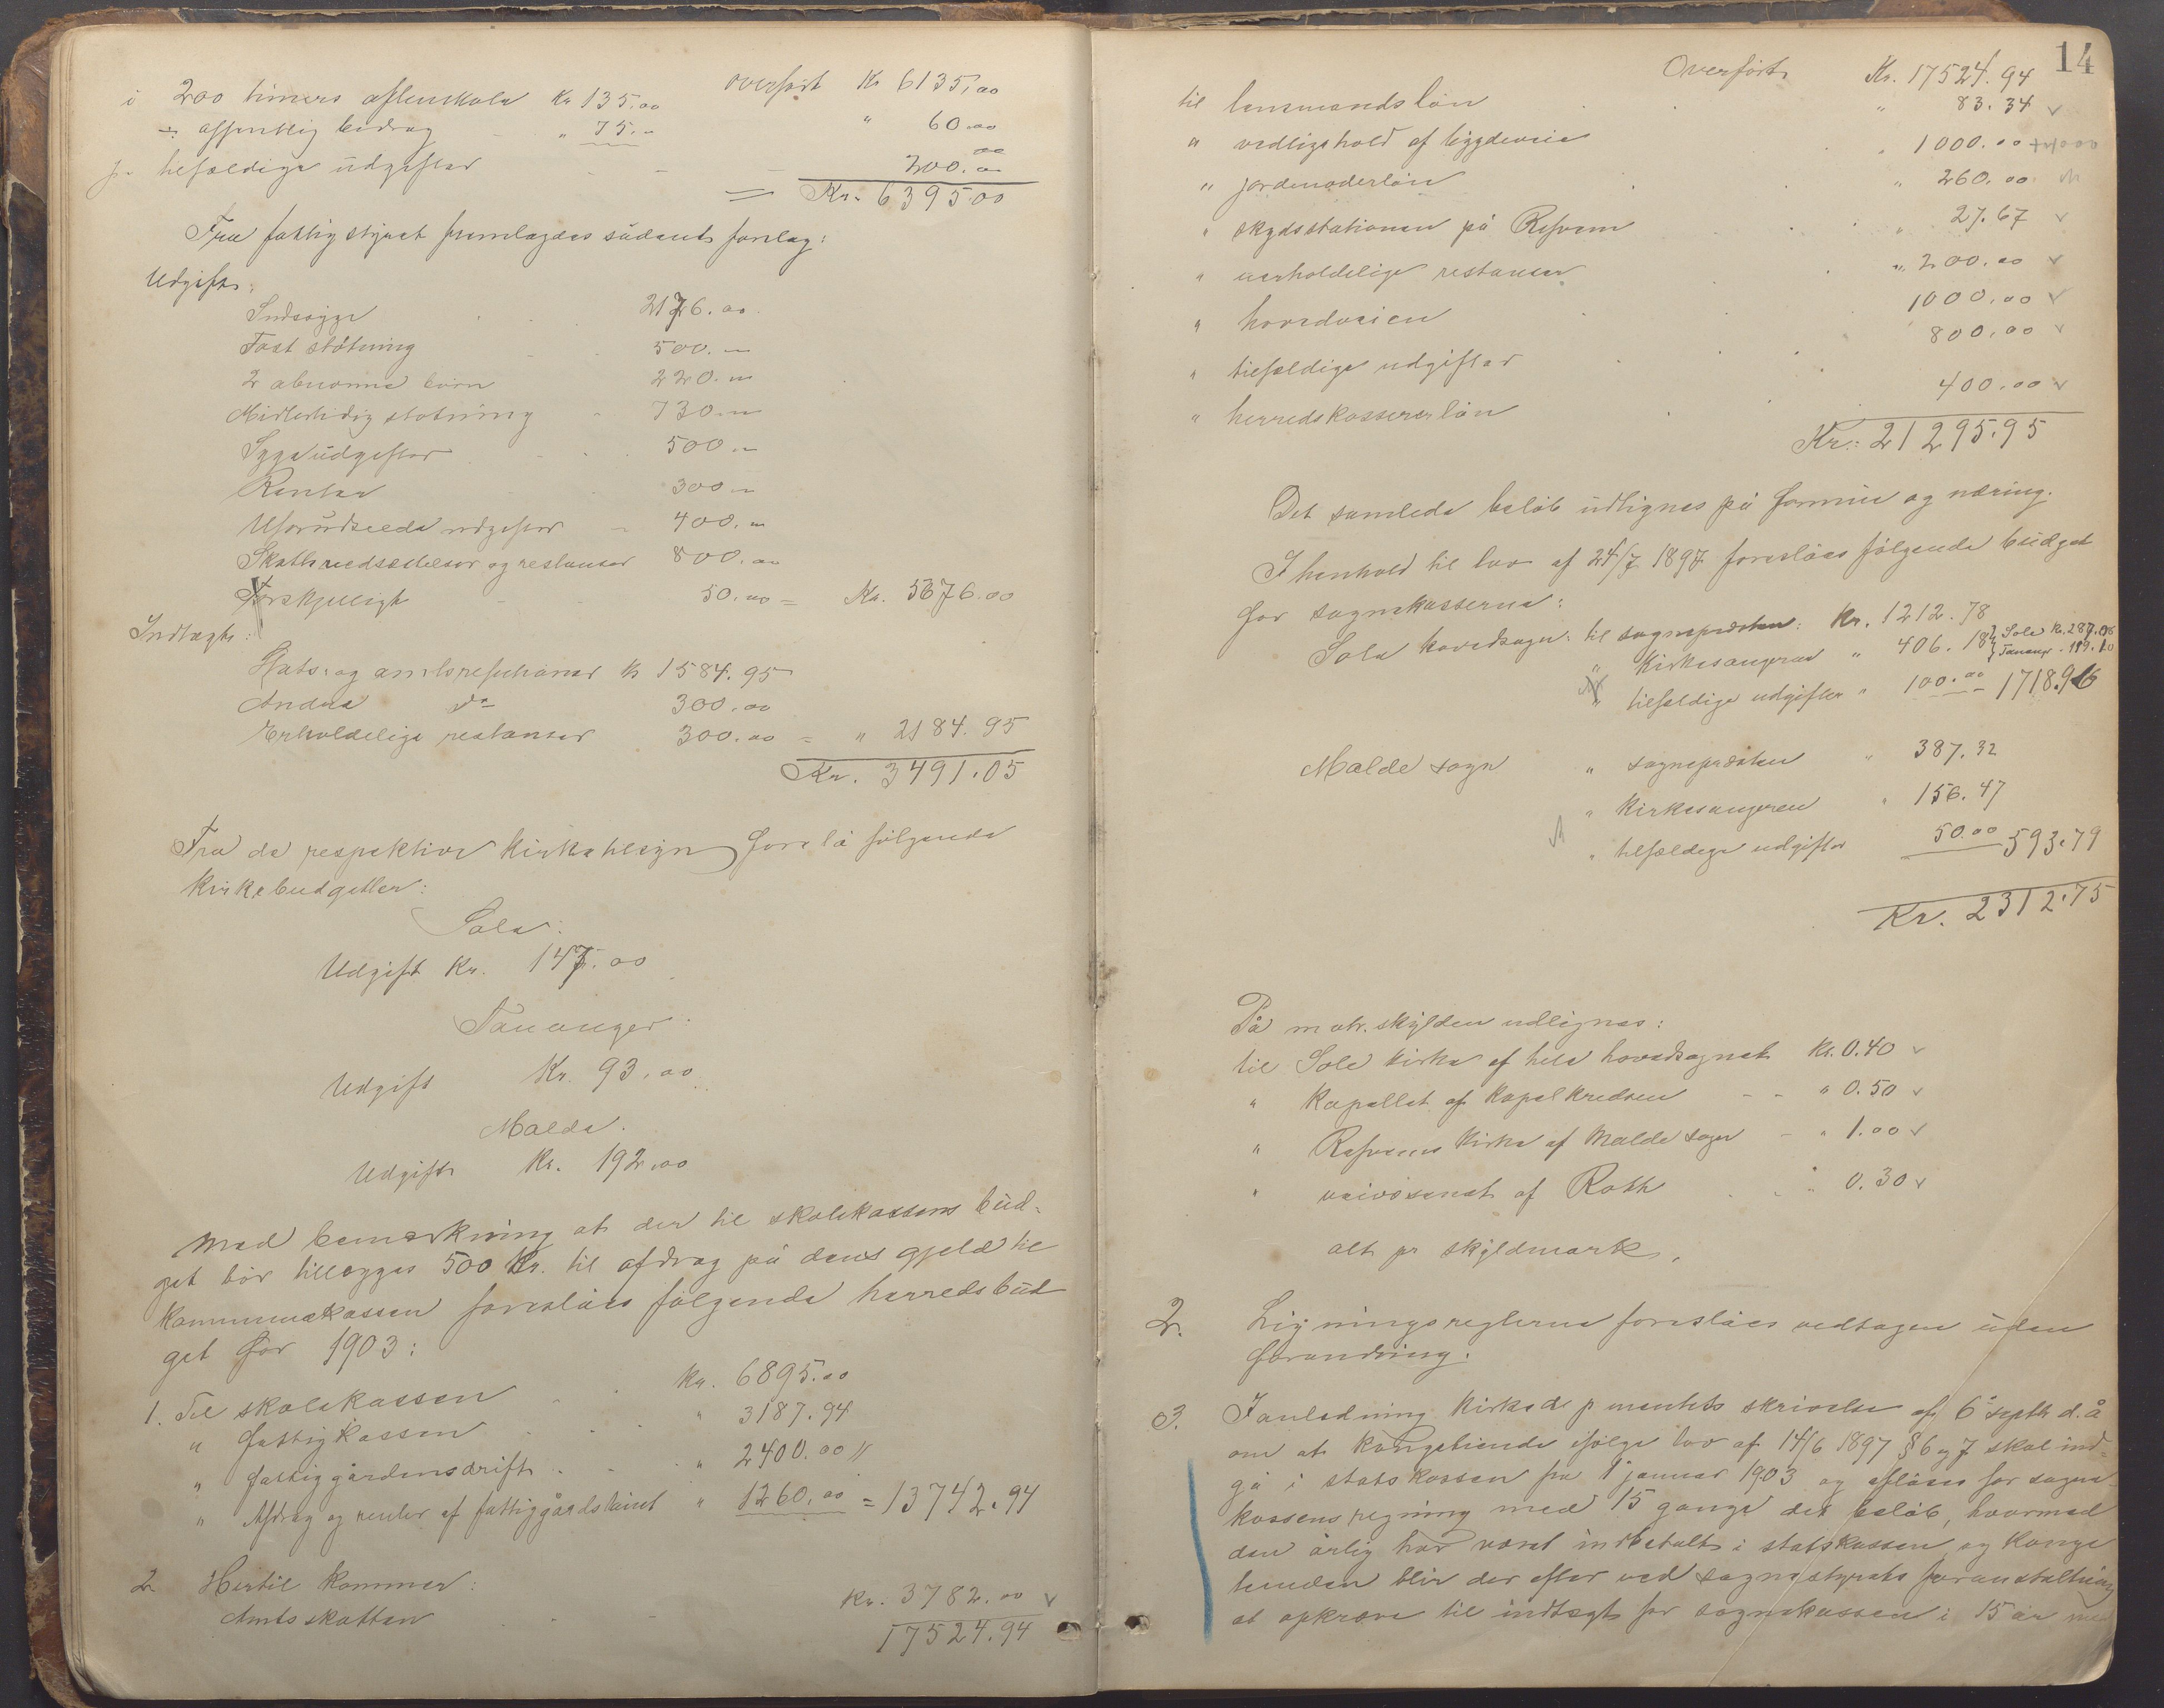 overført Kr 6135,00
i 200 timers aftenskole Kr 135.00
÷ offentlig bidrag - " 75.- " 60.00
til tilfældige udgifter - - - 200.00
= Kr. 6395.00
Fra fattigstyret fremlagdes sådant forslag:
Udgift:
Indsogge 2126.00
Fast støtning 500.-
2 abnorme børn 220.-
Midlertidig støtning 730.-
Sygeudgifter 500.-
Renter 300.-
Uforudseede udgifter - 400.-
Skattenedsættelser og restanser 800.00
Forskjelligt 50.00 = Kr. 5676.00
Indtægt:
Stats- og amtsrefusioner Kr 1584.95
Andre do 300.00
Erholdelige restanser 300.00 = " 2184.95
Kr. 3491.05
Fra de respektive kirketilsyn forelå følgende
kirkebudgetter:
Sola:
Udgift Kr. 147.00
Tananger:
Udgift Kr. 93.00
Malde.
Udgift Kr. 192.00
Med bemærkning at der til skolekassens bud-
get bør tillægges 500 Kr. til afdrag på dens gjeld til
kommunekassen foreslåes følgende herredsbud
get for 1903:
1. Til skolekassen Kr. 6895.00
" fattigkassen " 3187.94
" fattiggårdens drift " 2400.00
" Afdrag og renter af fattiggårdslånet " 1260.00 = 13742.94
2 Hertil kommer:
Amtsskatten Kr. 3782.00 v
17524.94
14
Overført Kr. 17524.94
til lensmandsløn " 83.34 v
" vedligehold af bygdeveie " 1000.00 +4000
" jordemoderløn " 260.00
" skydsstationen på Refsem " 27.67 v
" uerholdelige restanser " 200.00 v
" hovedveien 1000.00 v
" tilfældige udgifter 800.00 v
" herredskassererløn 400.00 v
Kr: 21295.95
Det samlede beløb udlignes på formue og næring.
I henhold til lov af 24/7 1897 foreslåes følgende budget
for sognekasserne:
Sola hovedsogn: til sognepræsten: Kr. 1212.78
" Kirkesangeren " 406.18 } Sole Kr. 287.08 Tananger - 119.10
" tilfældige udgifter " 100.00 - 1718.96
Malde sogn " sognepræsten " 387.32
" Kirkesangeren " 156.47
" tilfældige udgifter 50.00 593.79
Kr. 2312.75
På matr. skylden udlignes:
til Sole kirke af hele hovedsognet Kr. 0.40 v
" Kapellet af Kapelkredsen - - " 0.50 v
" Refsems kirke af Malde sogn - " 1.00 v
" veivæsenet af Roth " 0.30 v
alt pr skyldmark.
2. Ligningsreglerne foreslåes vedtagen uden
forandring.
3. I anledning Kirkedepmentets skrivelse af 6 septb d.å
om at kongetiende ifølge lov af 14/6 1897 § 6 og 7 skal ind-
gå i statskassen fra 1 januar 1903 og afløses for sogne-
kassens regning med 15 gange det beløb, hvormed
den årlig har været indbetalt i statskassen og konge
tienden blir derefter ved sognestyrets foranstaltning
at opkræve til indtægt for sognekassen i 15 år med